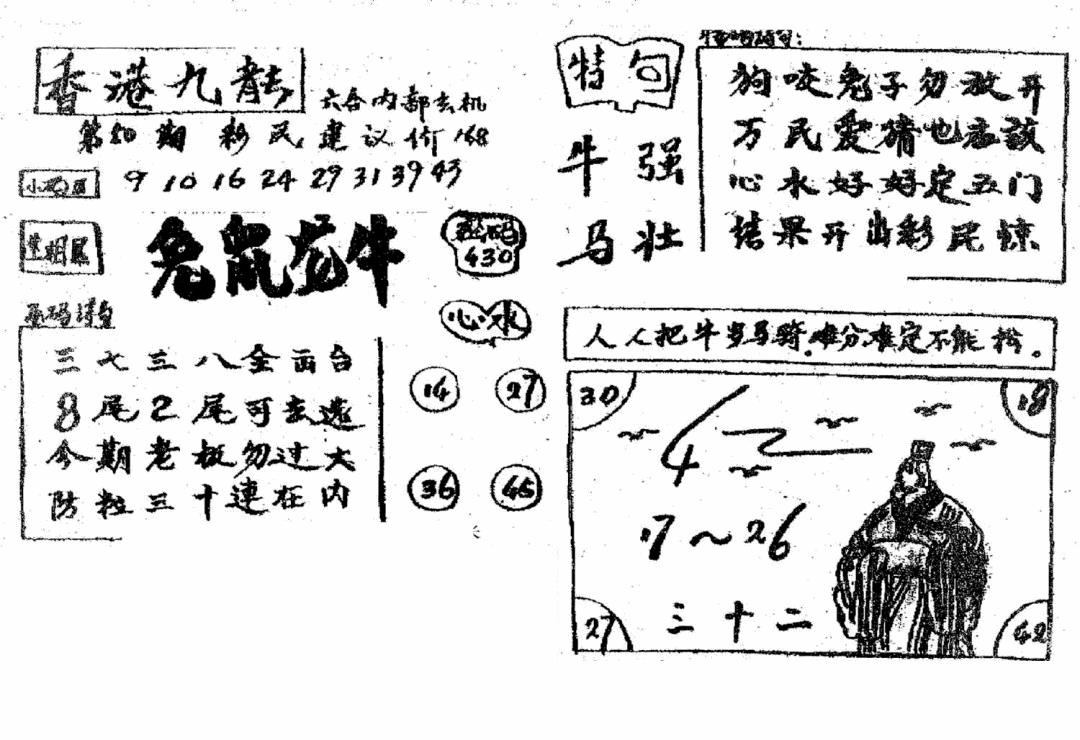 香港九龍
六合内部玄机
第50期 彩民建议价168
9 10 16 24 29 31 39 43
生相
兔鼠龙牛
密码
430
心水
三七三八全面台
8尾2尾可去逃
今期老板勿过大
防粒三十連在内
14
27
36
45
特句
牛强
马壮
狗咬兔子勿放开
万民爱猜也应該
心水好好定五门
结果开出彩民惊
人人把牛当马骑。难分难定不能松。
30
18
4
17~26
三十二
27
42